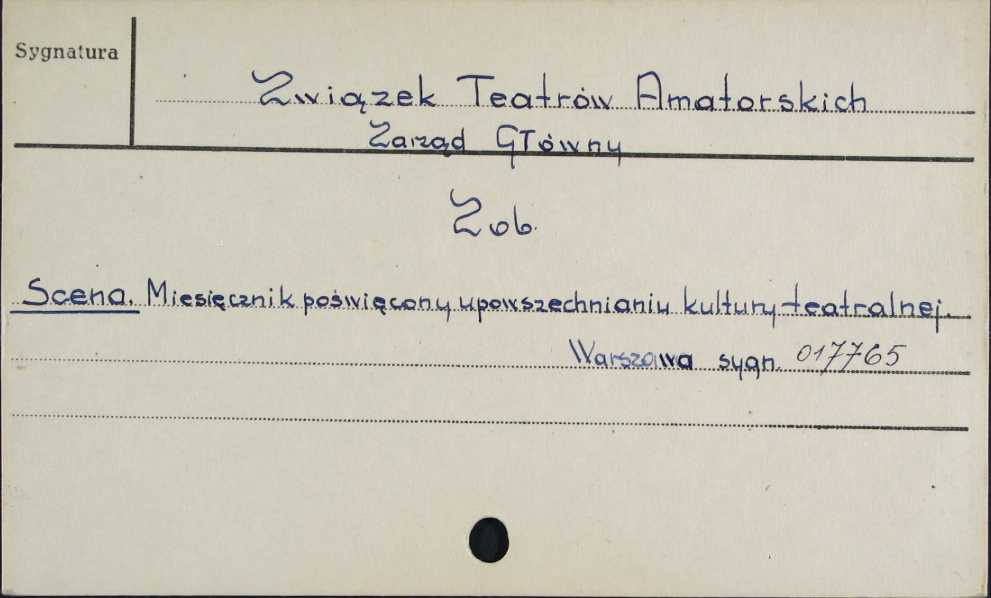 Sygnatura
Związek Teatrów Amatorskich
Zarząd Główny
Zob.
Scena. Miesięcznik poświęcony upowszechnianiu kultury teatralnej.
Warszawa sygn. 017765